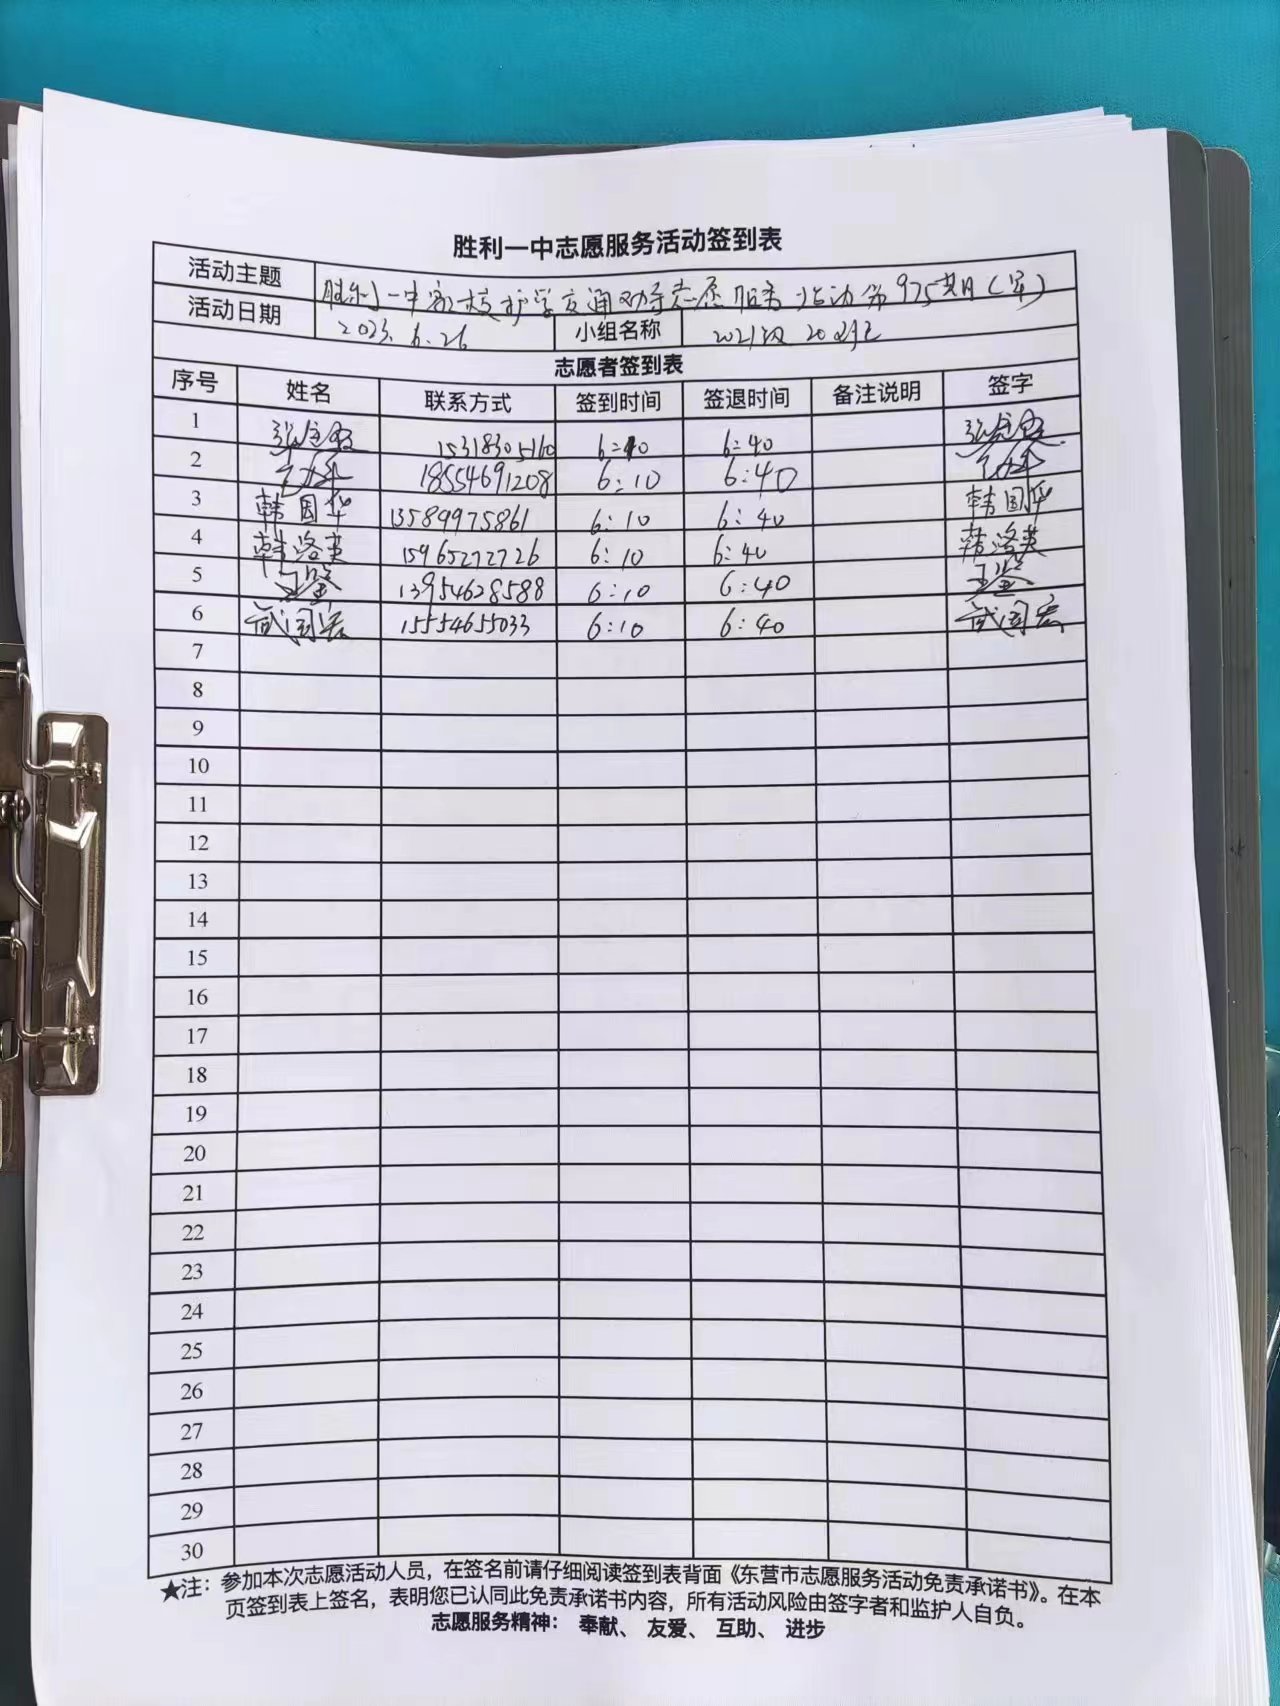 胜利一中志愿服务活动签到表
活动主题 胜利一中家校护学交通劝导志愿服务活动第975期(军)
活动日期 2023.6.26 小组名称 2021级20班
志愿者签到表
序号 姓名 联系方式 签到时间 签退时间 备注说明 签字
1 15318305160 6:10 6:40
2 18554691208 6:10 6:40
3 韩国华 13589975861 6:10 6:40 韩国华
4 韩洛英 15965272726 6:10 6:40 韩洛英
5 王鉴 13954628588 6:10 6:40 王鉴
6 武国宏 15554655033 6:10 6:40 武国宏
7
8
9
10
11
12
13
14
15
16
17
18
19
20
21
22
23
24
25
26
27
28
29
30
★注：参加本次志愿活动人员，在签名前请仔细阅读签到表背面《东营市志愿服务活动免责承诺书》。在本
页签到表上签名，表明您已认同此免责承诺书内容，所有活动风险由签字者和监护人自负。
志愿服务精神：奉献、友爱、互助、进步